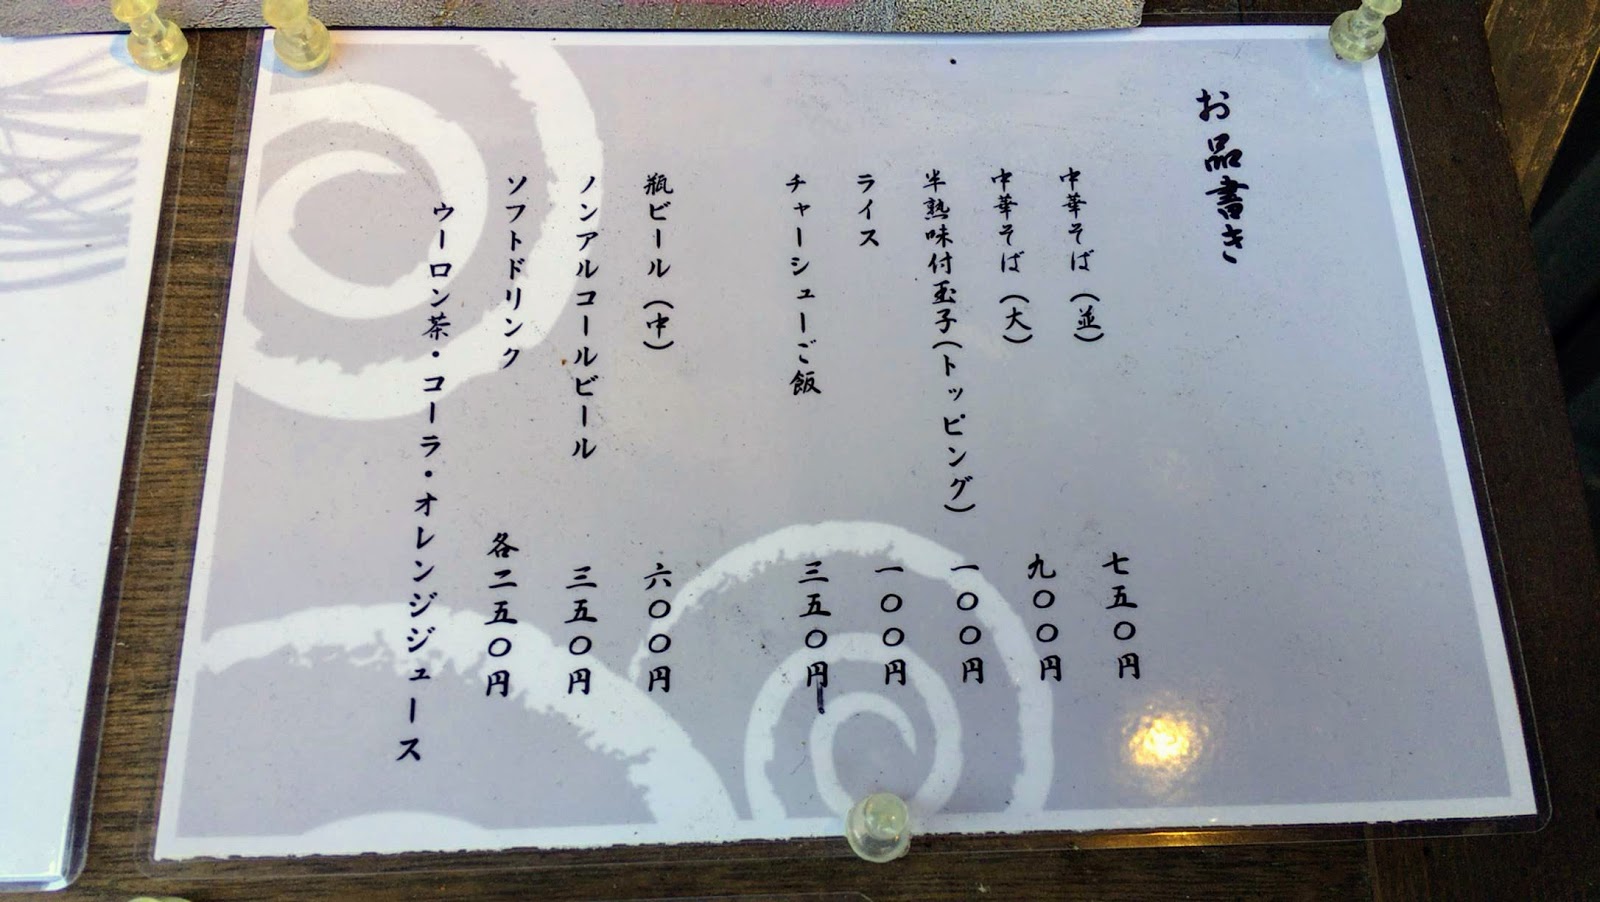 お品書き
中華そば（並） 七五〇円
中華そば（大） 九〇〇円
半熟味付玉子（トッピング） 一〇〇円
ライス 一〇〇円
チャーシューご飯 三五〇円
瓶ビール（中） 六〇〇円
ノンアルコールビール 三五〇円
ソフトドリンク 各二五〇円
ウーロン茶・コーラ・オレンジジュース